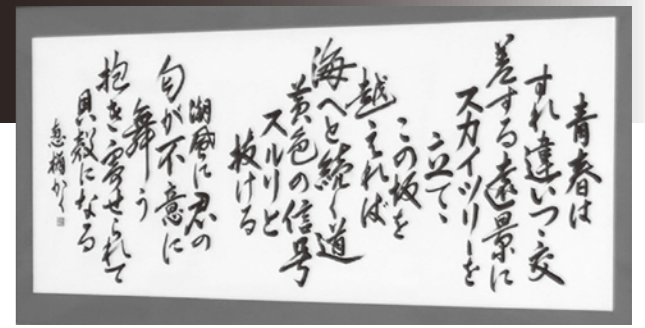 青春は
すれ違いつゝ交
差する遠景に
スカイツリーを
立てゝ
この坂を
越えれば
海へと続く道
黄色の信号
スルリと
抜ける
潮風に君の
匂が不意に
舞う
抱き寄せられて
貝殻になる
かく